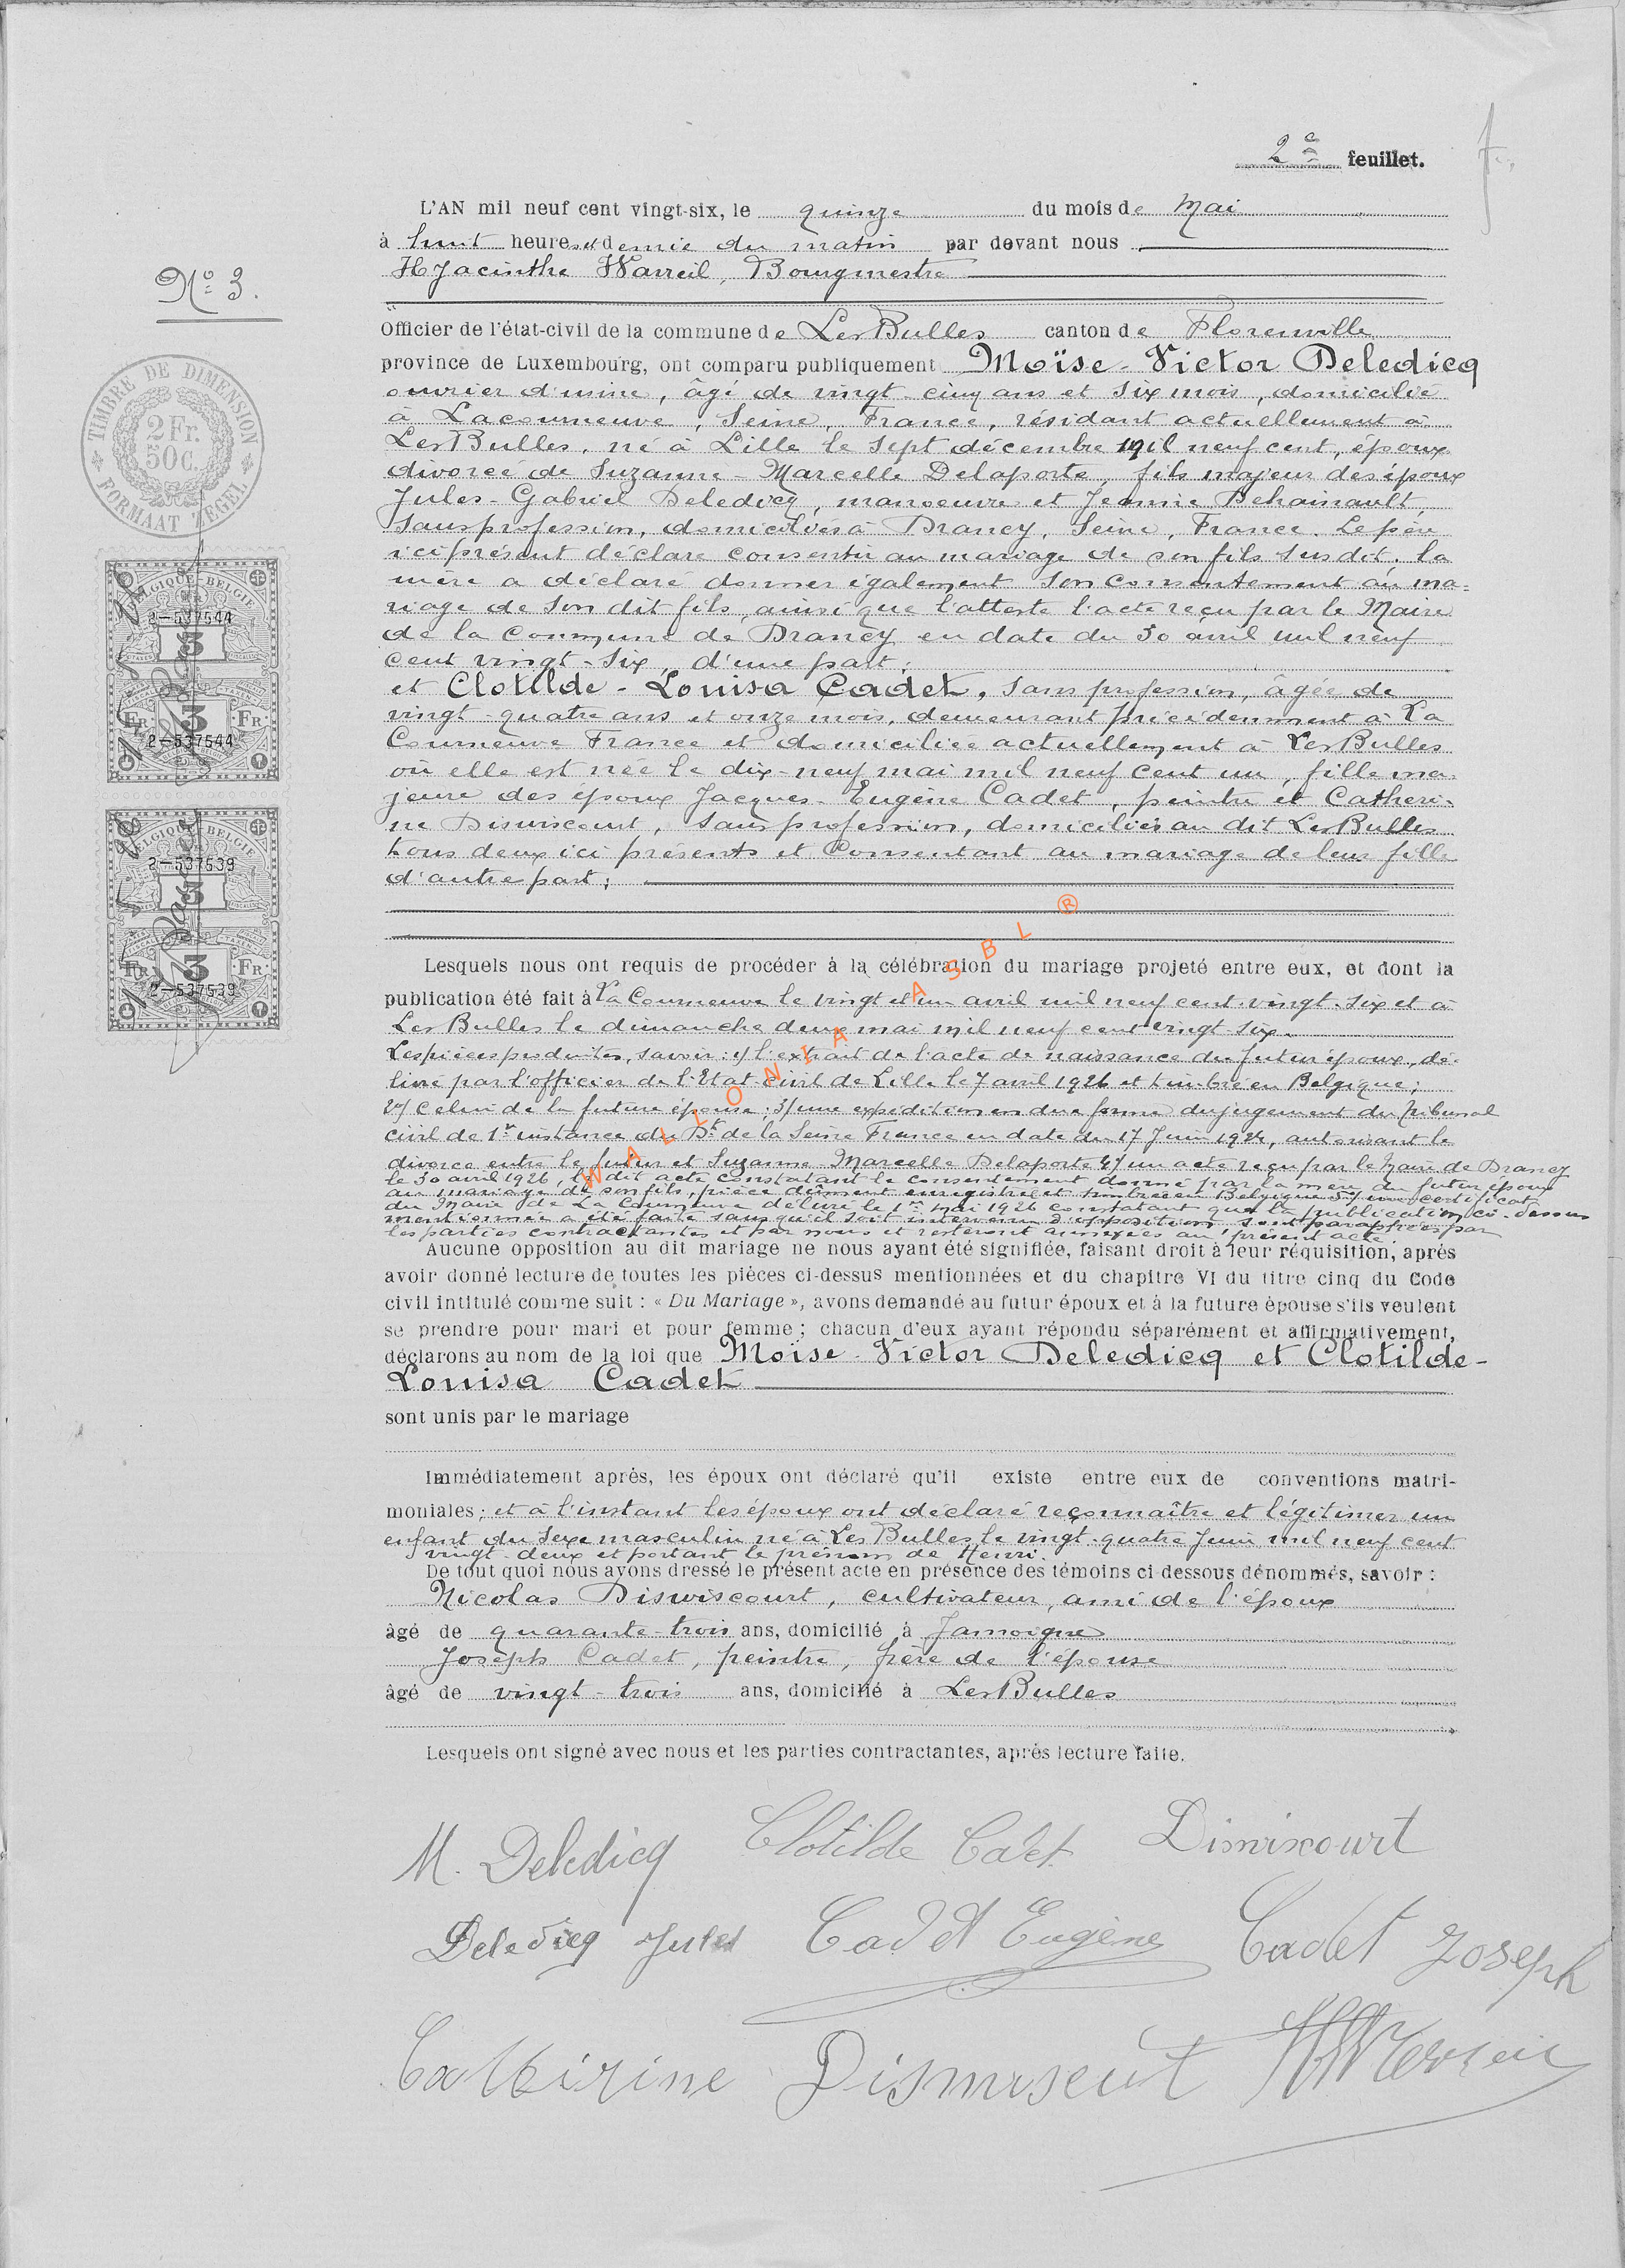 2e feuillet.
L'AN mil neuf cent vingt-six, le quinze du mois de Mai
à huit heures et demie du matin par devant nous
Hyacinthe Warreil, Bourgmestre
N° 3.
Officier de l'état-civil de la commune de Les Bulles canton de Florenville
province de Luxembourg, ont comparu publiquement Moïse-Victor Deledicq
ouvrier d'usine, âgé de vingt-cinq ans et six mois, domicilié
à Lacourneuve, Seine, France, résidant actuellement à
Les Bulles, né à Lille le sept décembre mil neuf cent, époux
divorcé de Suzanne-Marcelle Delaporte, fils majeur des époux
Jules-Gabriel Deledicq, manoeuvre et Jeanne Dehainault,
sans profession, domiciliés à Drancy, Seine, France. Le père
ici présent déclare consentir au mariage de son fils susdit, la
mère a déclaré donner également son consentement au ma=
riage de son dit fils, ainsi que l'atteste l'acte reçu par le Maire
de la Commune de Drancy en date du 30 avril mil neuf
cent vingt-six, d'une part;
et Clotilde-Louisa Cadet, sans profession, âgée de
vingt-quatre ans et onze mois, demeurant précédemment à La
Courneuve France et domiciliée actuellement à Les Bulles
où elle est née le dix-neuf mai mil neuf cent un, fille ma-
jeure des époux Jacques-Eugène Cadet, peintre et Catheri-
ne Diswiscourt, sans profession, domiciliés au dit Les Bulles
tous deux ici présents et consentant au mariage de leur fille
d'autre part;
Lesquels nous ont requis de procéder à la célébration du mariage projeté entre eux, et dont la
publication été fait à La Courneuve le vingt et un avril mil neuf cent vingt-six et à
Les Bulles le dimanche deux mai mil neuf cent vingt-six.
Les pièces produites, savoir: 1/ l'extrait de l'acte de naissance du futur époux, dé-
livré par l'officier de l'Etat-civil de Lille le 7 avril 1926 et timbré en Belgique;
2°/ Celui de la future épouse; 3/ une expédition en due forme du jugement du tribunal
civil de 1re instance du Dt de la Seine France en date du 17 Juin 1924, autorisant le
divorce entre le futur et Suzanne-Marcelle Delaporte 4/ un acte reçu par le Maire de Drancy
le 30 avril 1926, le dit acte constatant le consentement donné par la mère du futur époux
au mariage de son fils, pièce dûment enregistrée et timbrée en Belgique 5/ un certificat
du Maire de La Courneuve délivré le 1er mai 1926 constatant que la publication ci-dessus
mentionnée a été faite sans qu'il soit intervenu d'opposition, sont paraphées par
les parties contractantes et par nous et resteront annexées au présent acte.
Aucune opposition au dit mariage ne nous ayant été signifiée, faisant droit à leur réquisition, après
avoir donné lecture de toutes les pièces ci-dessus mentionnées et du chapitre VI du titre cinq du Code
civil intitulé comme suit : « Du Mariage », avons demandé au futur époux et à la future épouse s'ils veulent
se prendre pour mari et pour femme ; chacun d'eux ayant répondu séparément et affirmativement,
déclarons au nom de la loi que Moïse-Victor Deledicq et Clotilde-
Louisa Cadet
sont unis par le mariage
Immédiatement après, les époux ont déclaré qu'il existe entre eux de conventions matri-
moniales; et à l'instant les époux ont déclaré reconnaître et légitimer un
enfant du sexe masculin né à Les Bulles le vingt-quatre Juin mil neuf cent
vingt-deux et portant le prénom de Henri.
De tout quoi nous avons dressé le présent acte en présence des témoins ci-dessous dénommés, savoir :
Nicolas Diswiscourt, cultivateur, ami de l'époux
âgé de quarante-trois ans, domicilié à Jamoigne
Joseph Cadet, peintre, frère de l'épouse
âgé de vingt-trois ans, domicilié à Les Bulles
Lesquels ont signé avec nous et les parties contractantes, après lecture faite.
M. Deledicq Clotilde Cadet Diswiscourt
Deledicq Jules Cadet Eugène Cadet Joseph
TIMBRE DE DIMENSION
2 Fr.
50 C.
FORMAAT ZEGEL
BELGIQUE-BELGIE
2-537544
3
FR. 3 FR.
2-537544
BELGIQUE-BELGIE
2-537539
3
FR. 3 FR.
2-537539
WALLONIA ASBL ®